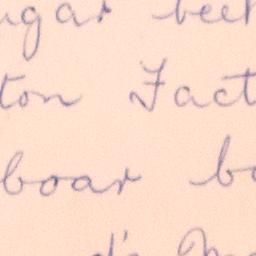 ugar beet
ton Fact
boar bo